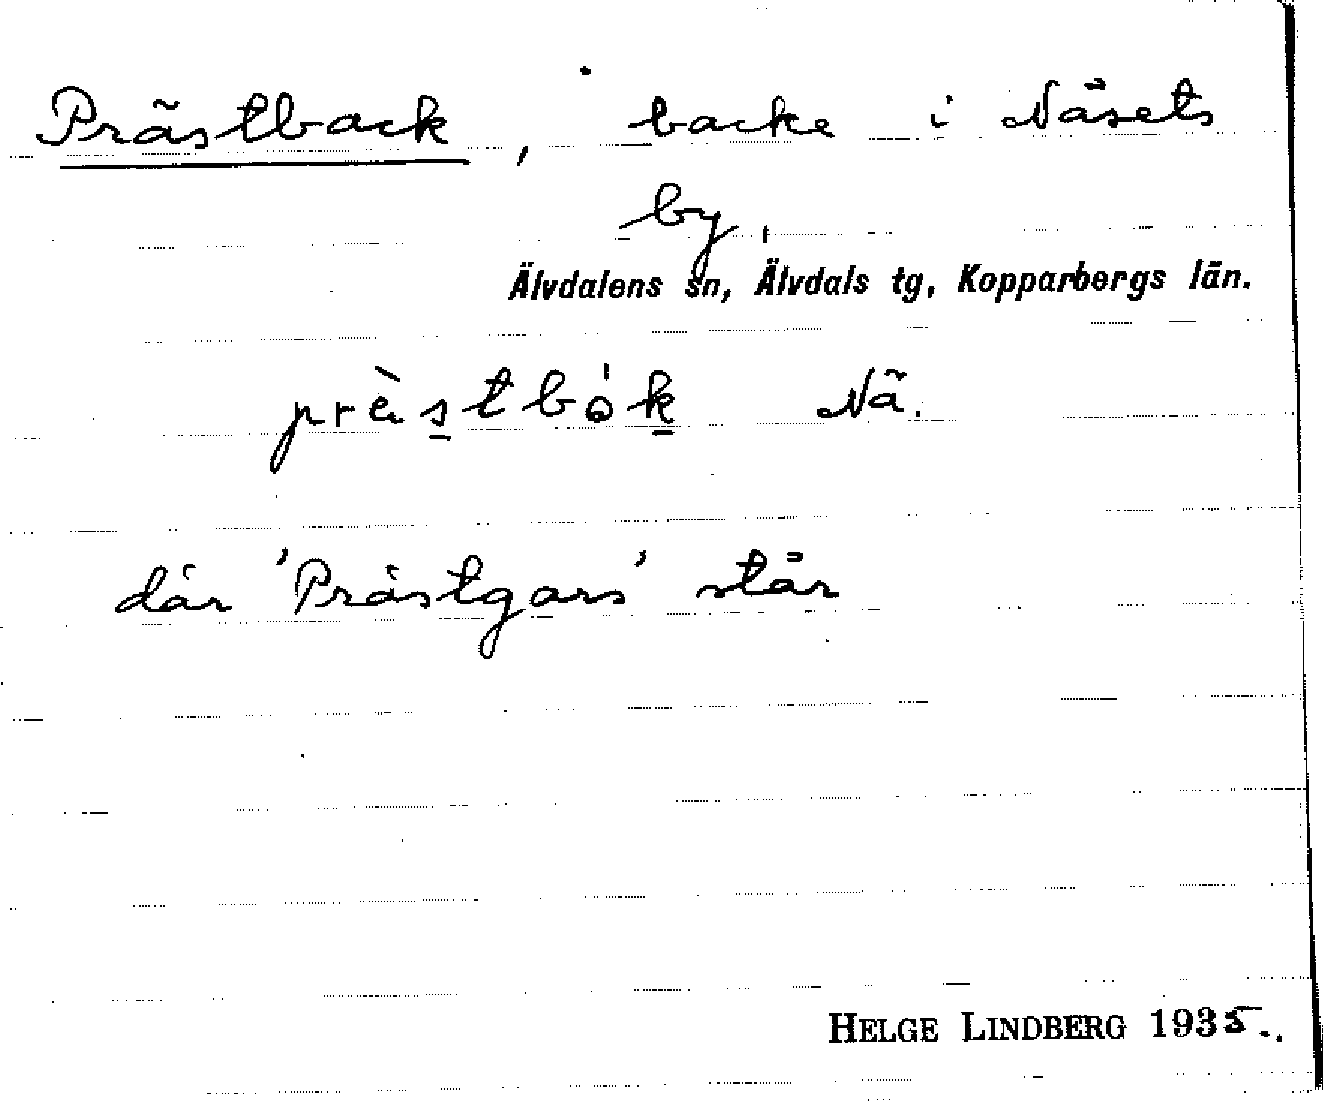 Prästback, backe i Näsets
by,
Älvdalens sn, Älvdals tg, Kopparbergs län.
prèstbók Nä.
där 'Prästgars' står
HELGE LINDBERG 1935.